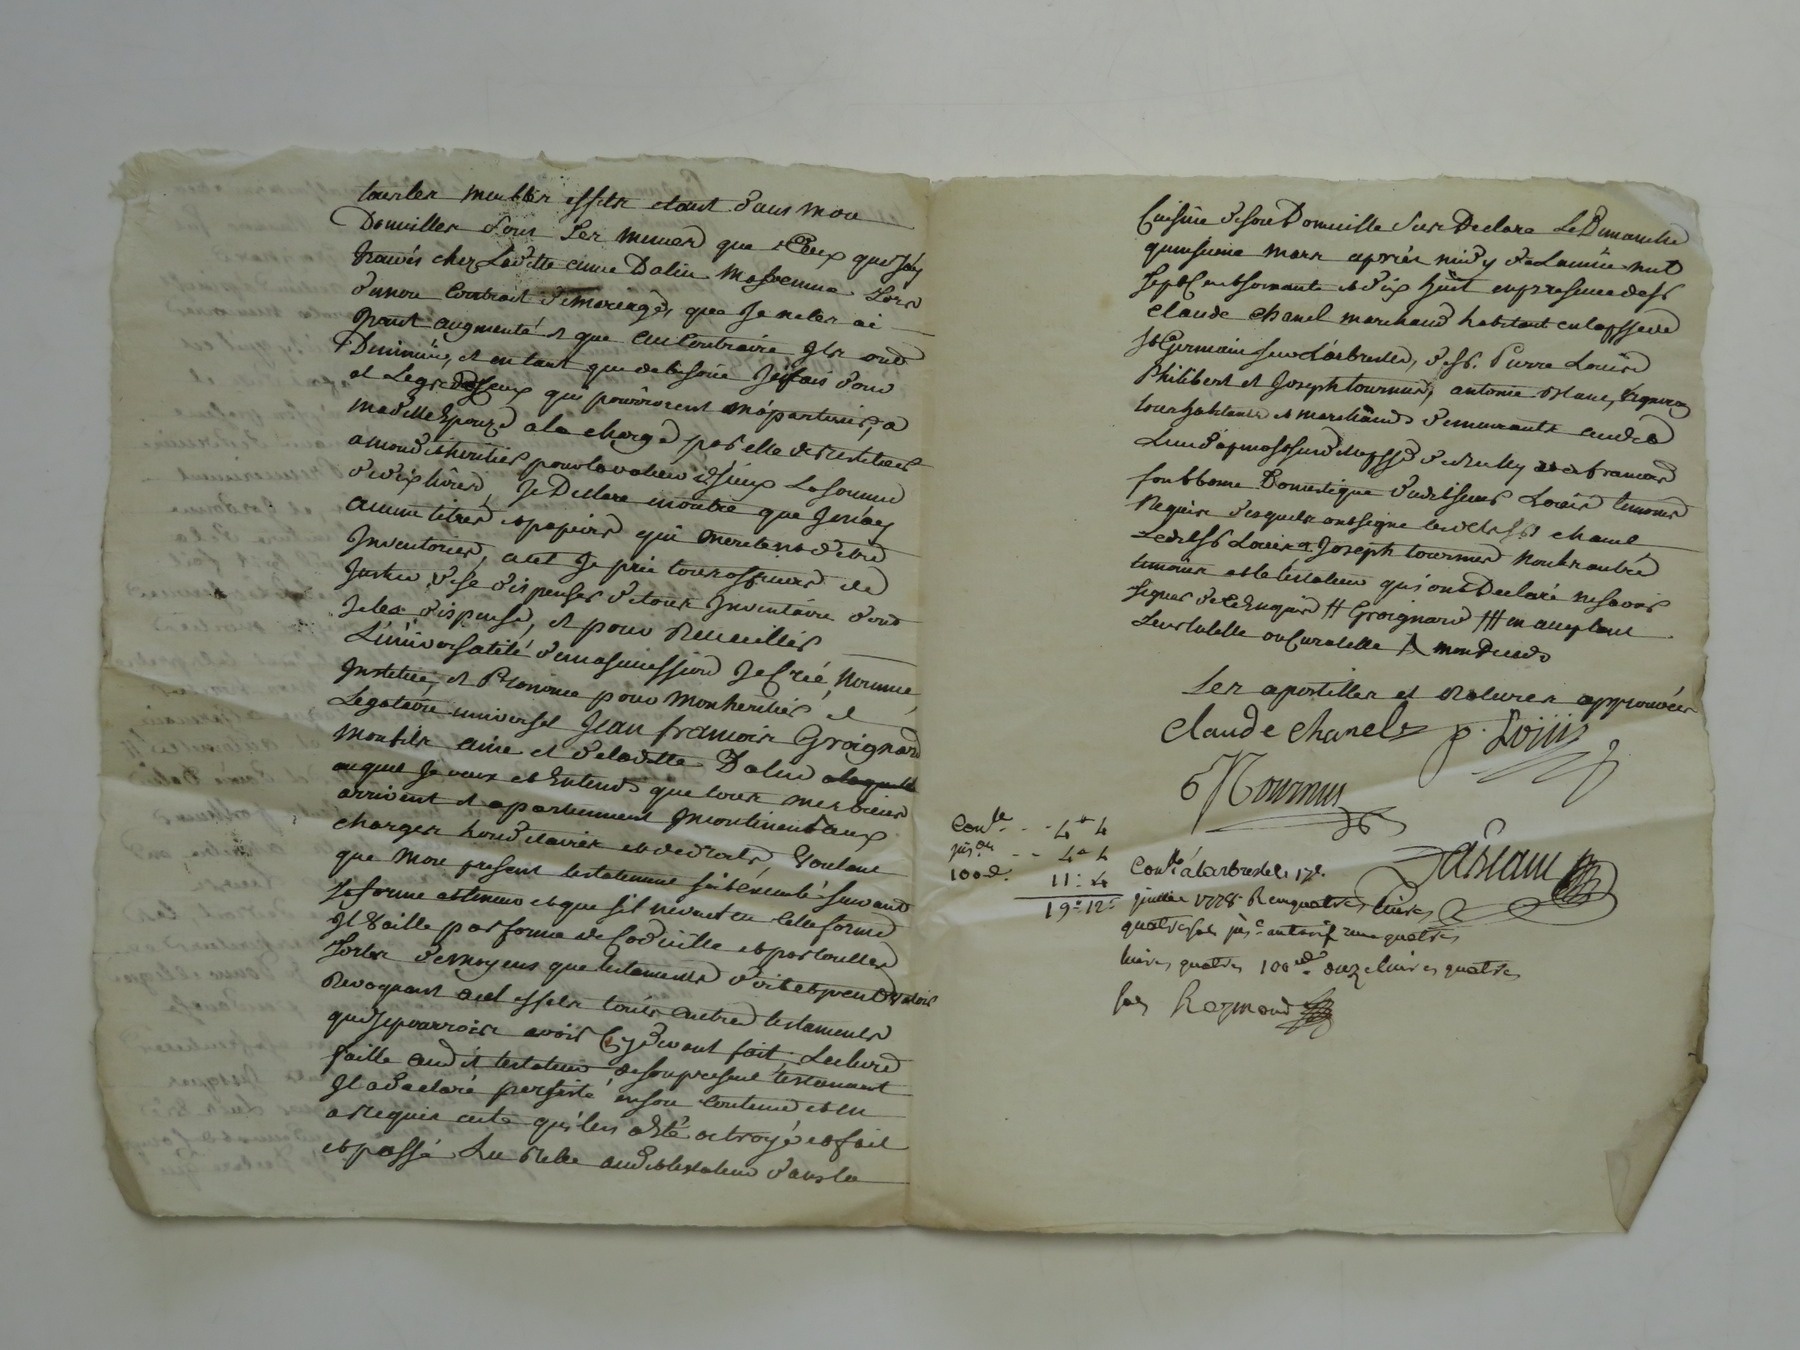 tous les meubles effets etant dans mon
Domiciller sont Les memes que Ceux que J'ay
trouvés chez Laditte anne Dalin Ma femme Lors
d'unou Contract de mariage, que Je ne les ai
point augmenté et que au Contraire Ils ont
Diminüé, et en tant que de besoin Je fais don
et Legs de Ceux qui pouvroient m'apartenir, a
maditte Epouze a la charge par elle de restituer
a mondit heritier pour la valeur d'iceux La somme
de dix livres, Je Declare en outre que Je n'ay
aucun titres et papiers qui meritent d'etre
Inventoriés, a cet Je prie tous officiers de
Justice de se dispenser de tous Inventaire dont
Je les dispense, et pour Recueillir
L'universalité de ma succession Je Créé, Nomme,
Institue, et Prononce pour Mon heritier et
Legataire universel Jean francois Groignard
Mon fils ainé et de laditte Dalin
auquel Je veux et Entends que tous mes biens
arrivent et apartiennent Incontinent aux
charges hereditaires et de droits Voulant
que Mon present testament soit éxecuté suivant
sa forme et teneur et que s'il ne vaut en telle forme
Il Vaille par forme de Codicille et par touttes
sortes de moyens que testament doit et peut Valoir
Revoquant a cet effet tous autres testaments
que Je pourrois avoir Cy devant fait, Lecture
faitte audit testateur de son present testament
Il a Declaré persisté en son Contenu et en
a Requis acte qu'il lui a Eté octroyé et fait
et passé Lu Relu audit testateur dans la
Cuisine de son Domicille Sus Declaré Le Dimanche
quinsieme mars après midy de L'année mil
Sept Cent soixante et dix huit en presence des srs
Claude chanel marchand habitant en la pssse de
St Germain sur L'arbresle, de sr. Pierre Louis
Philibert et Joseph tournus, antoine
tous habitants et marchands demeurants audit
et de francois
Domestique dudit sieur Louis temoins
Requis desquels ont signe led. sr chanel
Ledit sr Louis & Joseph tournus Non les autres
temoins et le testateur qui ont Declaré ne savoir
signer de ce Enquis # Groignard ## en acceptant
Leur tutelle ou Curatelle
Les apostilles et Ratures approuvées
Claude Chanel p. Loüis
Tournus
Conle - - 4# 4
4# 4
100e. 11 : 4
19 : 12
Conlé a Larbresle le 17e.
juillet 1778 Reçu quatre Livres
quatre sols quatre
livres quatre 100e onze livres quatre
sols Raymond